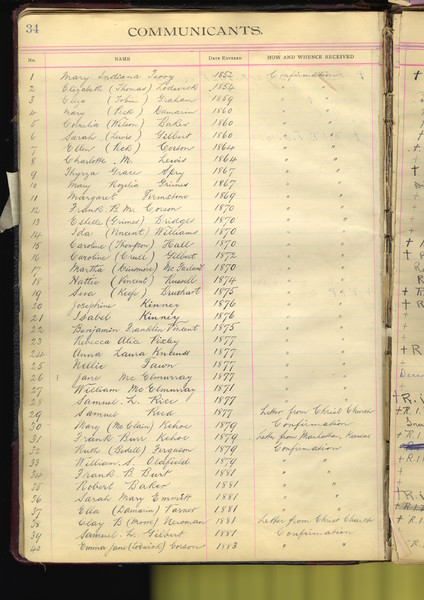 34
COMMUNICANTS.
No. NAME DATE ENTERED HOW AND WHENCE RECEIVED
1 Mary Indiana 1852 Confirmation
2 Elizabeth (Thomas) Lodwick 1854 " "
3 Eliza (John) Graham 1859 " "
4 Mary (Peck) Damarin 1860 " "
5 Cornelia (Wilson) Baker 1860 " "
6 Sarah (Lewis) Gilbert 1860 " "
7 Ellen (Peck) Corson 1864 " "
8 Charlotte M. Lewis 1864 " "
9 Thyrza Grace Spry 1867 " "
10 Mary Rogelia Grimes 1867 " "
11 Margaret Firmstone 1869 " "
12 Frank B. M. Corson 1870 " "
13 Estelle (Grimes) Bridges 1870 " "
14 Ida (Vincent) Williams 1870 " "
15 Caroline (Thompson) Hall 1870 " "
16 Caroline Gilbert 1872 " "
17 Martha (Dinsmore) Mc Farland 1870 " "
18 Hattie (Vincent) Russell 1874 " "
19 (Kepp) 1875 " "
20 Josephine Kinney 1876 " "
21 Isabel Kinney 1876 " "
22 Benjamin Franklin Vincent 1875 " "
23 Rebecca Alice Pixley 1877 " "
24 Anna Laura 1877 " "
25 Nellie Fawn 1877 " "
26 Jane Mc Elmurray 1877 " "
27 William Mc Elmurray 1871 " "
28 Samuel L. Rice 1877 " "
29 Samuel Reed 1877 Letter from Christ Church
30 Mary (Mc Clain) Kehoe 1879 Confirmation
31 Frank Burr Kehoe 1879 Letter from Manhattan, Kansas
32 Ruth (Bedell) Ferguson 1879 Confirmation
33 William S. Oldfield 1879 " "
34 Frank B. Burt 1881 " "
35 Robert Baker 1881 " "
36 Sarah Mary Emmitt 1881 " "
37 Ella (Damarin) Varner 1881 " "
38 Clay B (Moore) Newman 1881 Letter from Christ Church
39 Samuel L. Gilbert 1881 Confirmation
40 Emma Jane (Lodwick) Corson 1883 " "